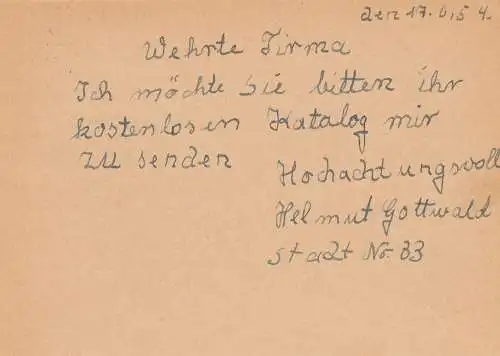 den 17.6.54.
Wehrte Firma
Ich möchte Sie bitten ihr
kostenlosen Katalog mir
zu senden
Hochachtungsvoll
Helmut Gottwald
stadt No. 33